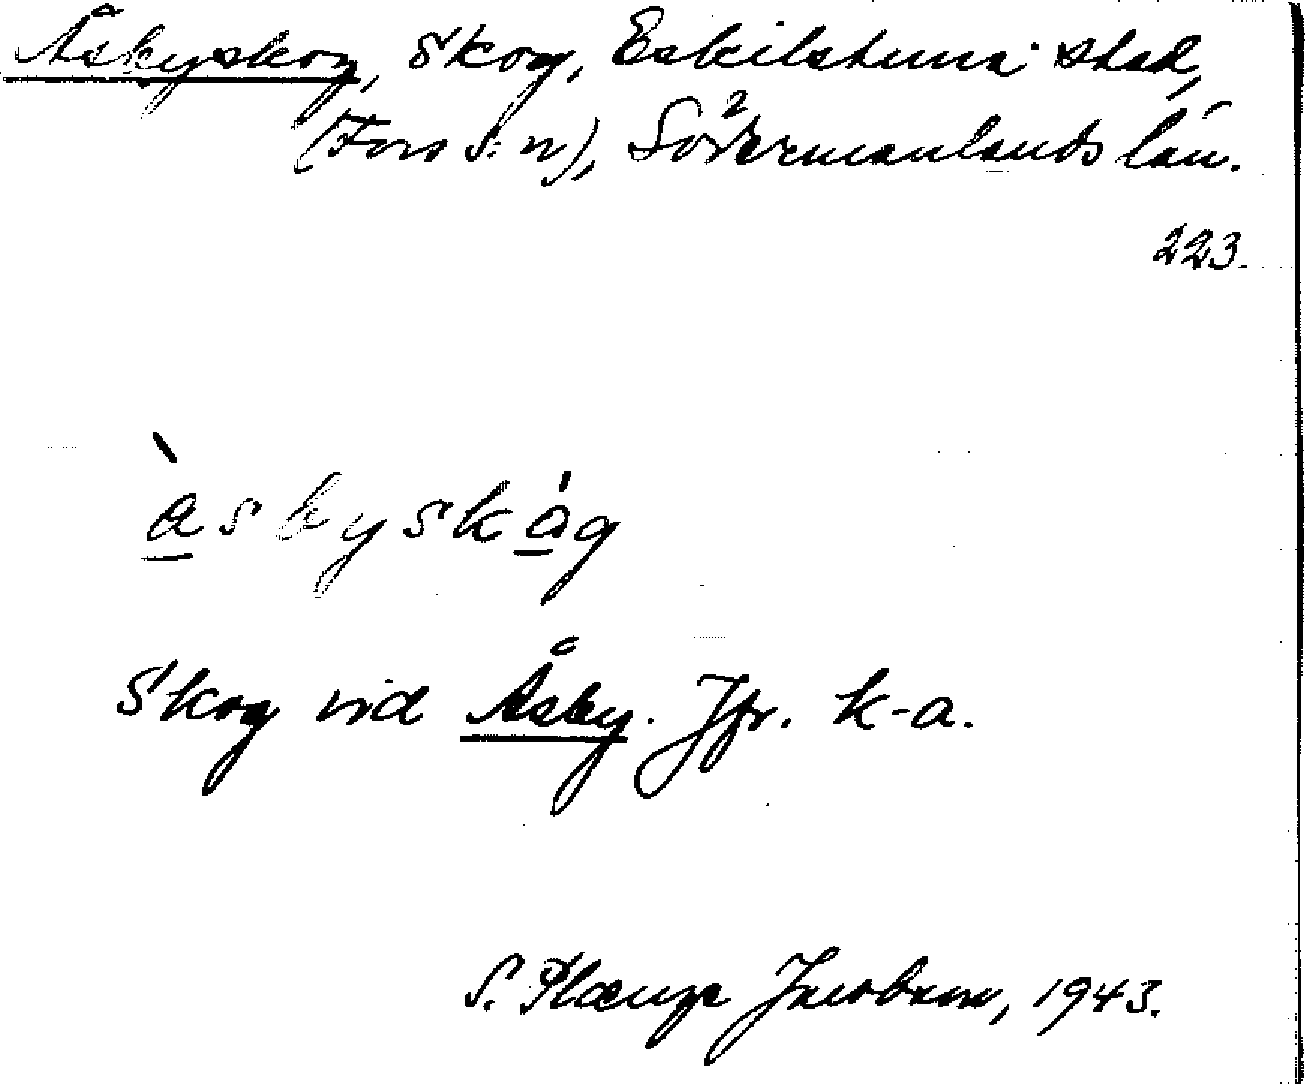 Åsbyskog, Skog, Eskilstuna stad,
(Fors s:n), Södermanlands län.
223.
àsbyskág
Skog vid Åsby. Jfr. k-a.
S. Plænge Jacobson, 1943.